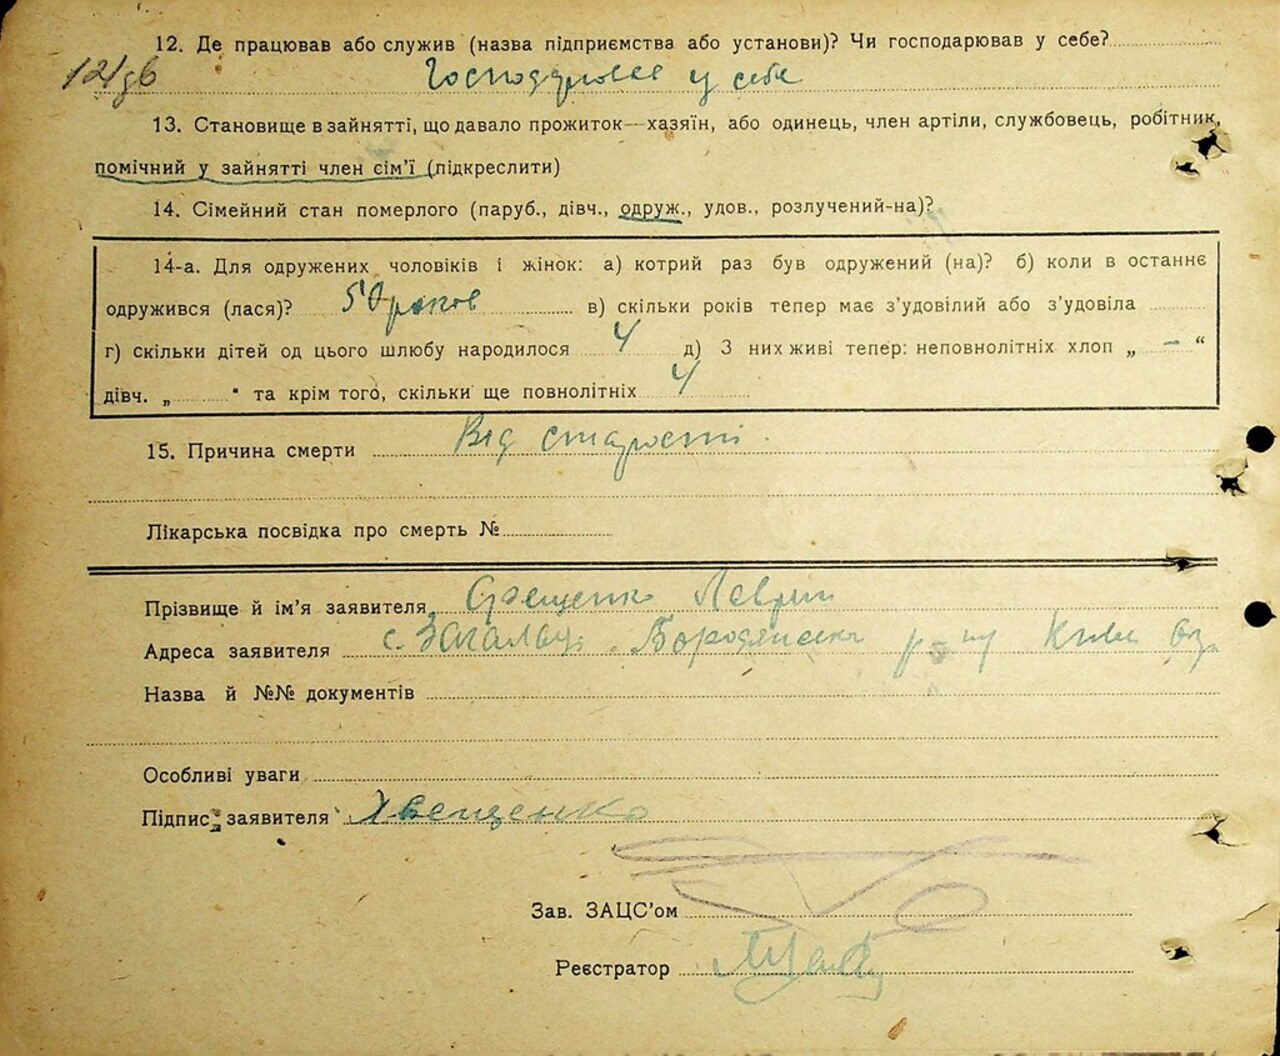 12. Де працював або служив (назва підприємства або установи)? Чи господарював у себе?
Господарював у себе
13. Становище в зайнятті, що давало прожиток—хазяїн, або одинець, член артіли, службовець, робітник,
помічний у зайнятті член сім'ї (підкреслити)
14. Сімейний стан померлого (паруб., дівч., одруж., удов., розлучений-на)?
14-а. Для одружених чоловіків і жінок: а) котрий раз був одружений (на)? б) коли в останнє
одружився (лася)? 50 роков в) скільки років тепер має з'удовілий або з'удовіла
г) скільки дітей од цього шлюбу народилося 4 д) З них живі тепер: неповнолітніх хлоп „ – “
дівч. „ “ та крім того, скільки ще повнолітніх 4
15. Причина смерти Від старости.
Лікарська посвідка про смерть №
Прізвище й ім'я заявителя Лаврин
Адреса заявителя с. Загальці Бородянськ р-ну Київ
Назва й №№ документів
Особливі уваги
Підпис заявителя Хвещенко
Зав. ЗАЦС'ом
Реєстратор